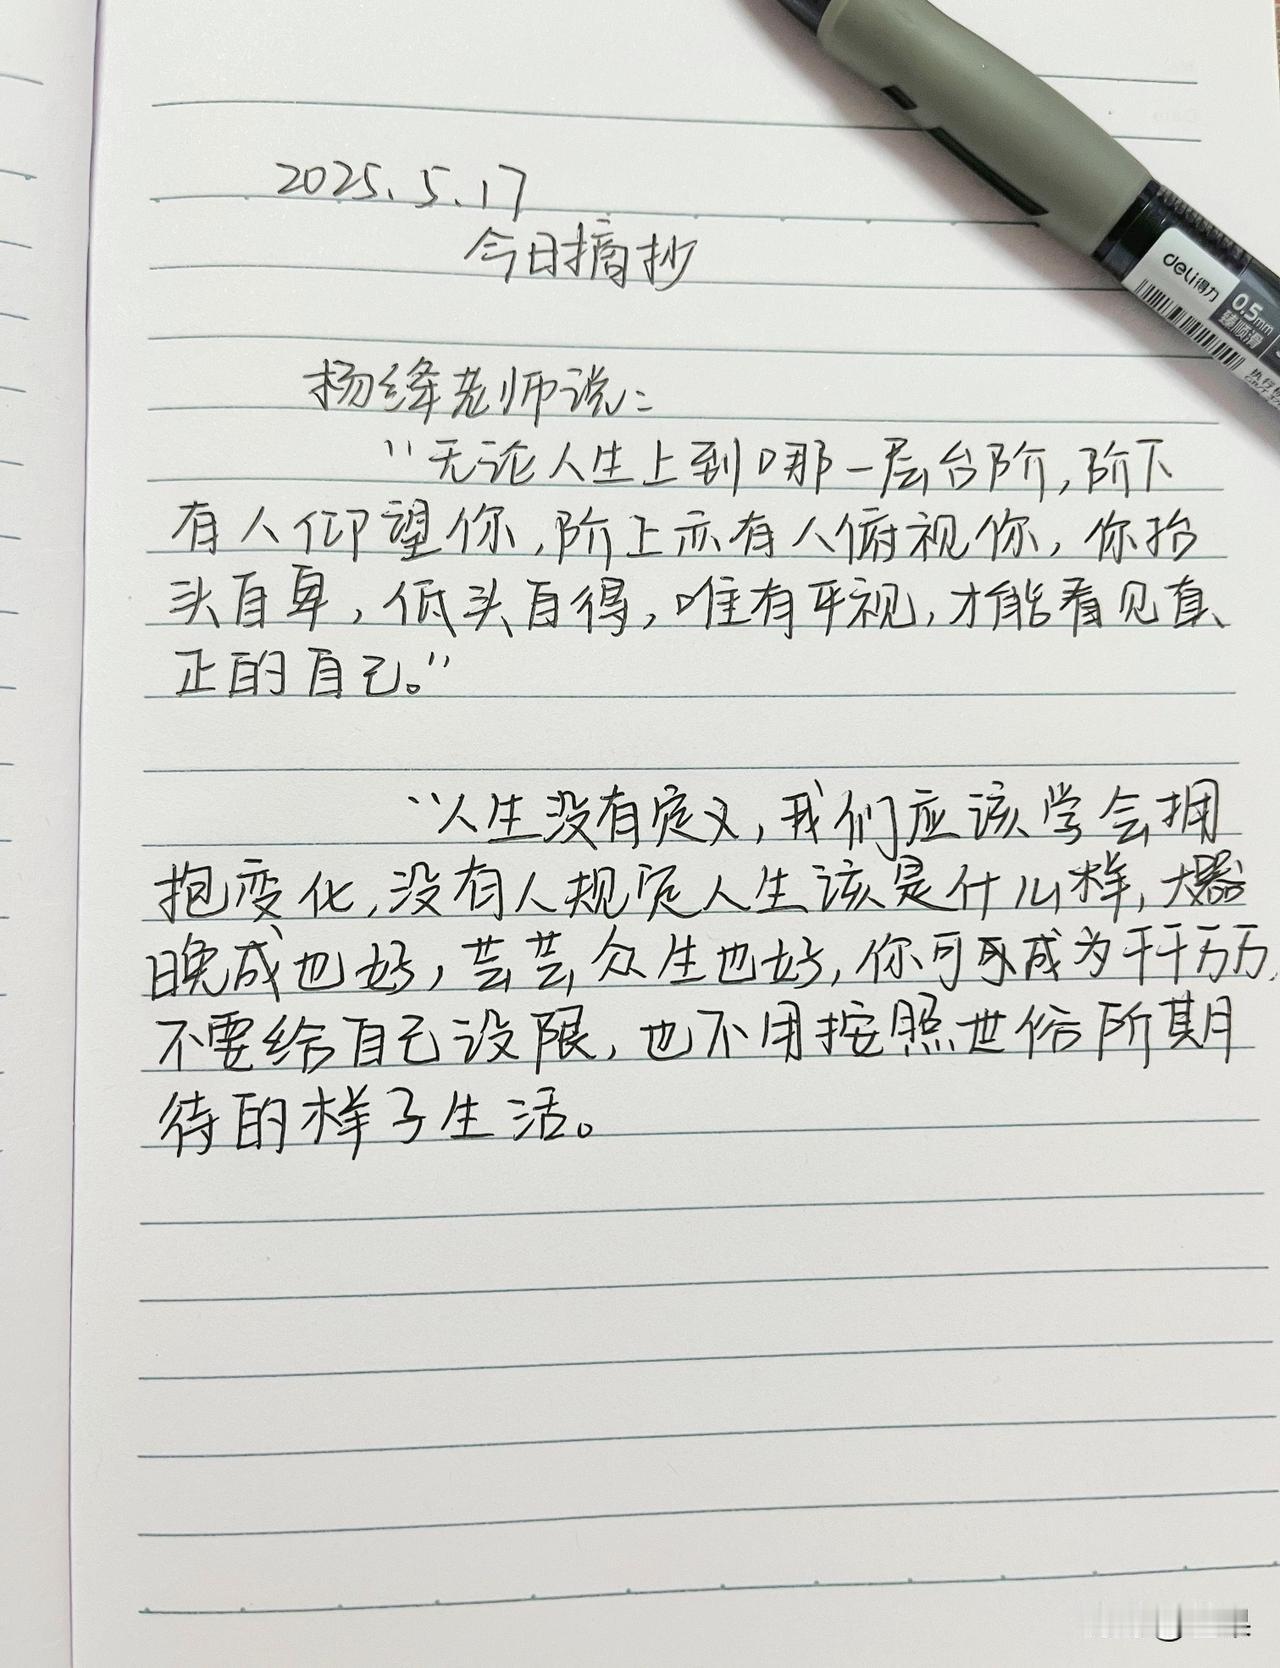 2025.5.17
今日摘抄
杨绛老师说:
“无论人生上到哪一层台阶,阶下
有人仰望你,阶上亦有人俯视你,你抬
头自卑,低头自得,唯有平视,才能看见真
正的自己。”
“人生没有定义,我们应该学会拥
抱变化,没有人规定人生该是什么样,大器
晚成也好,芸芸众生也好,你可以成为千千万万,
不要给自己设限,也不用按照世俗所期
待的样子生活。
deli得力
0.5mm
臻顺滑